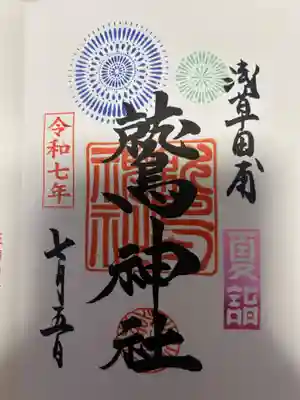 浅草田甫
夏詣
鷲神社
令和七年
七月五日